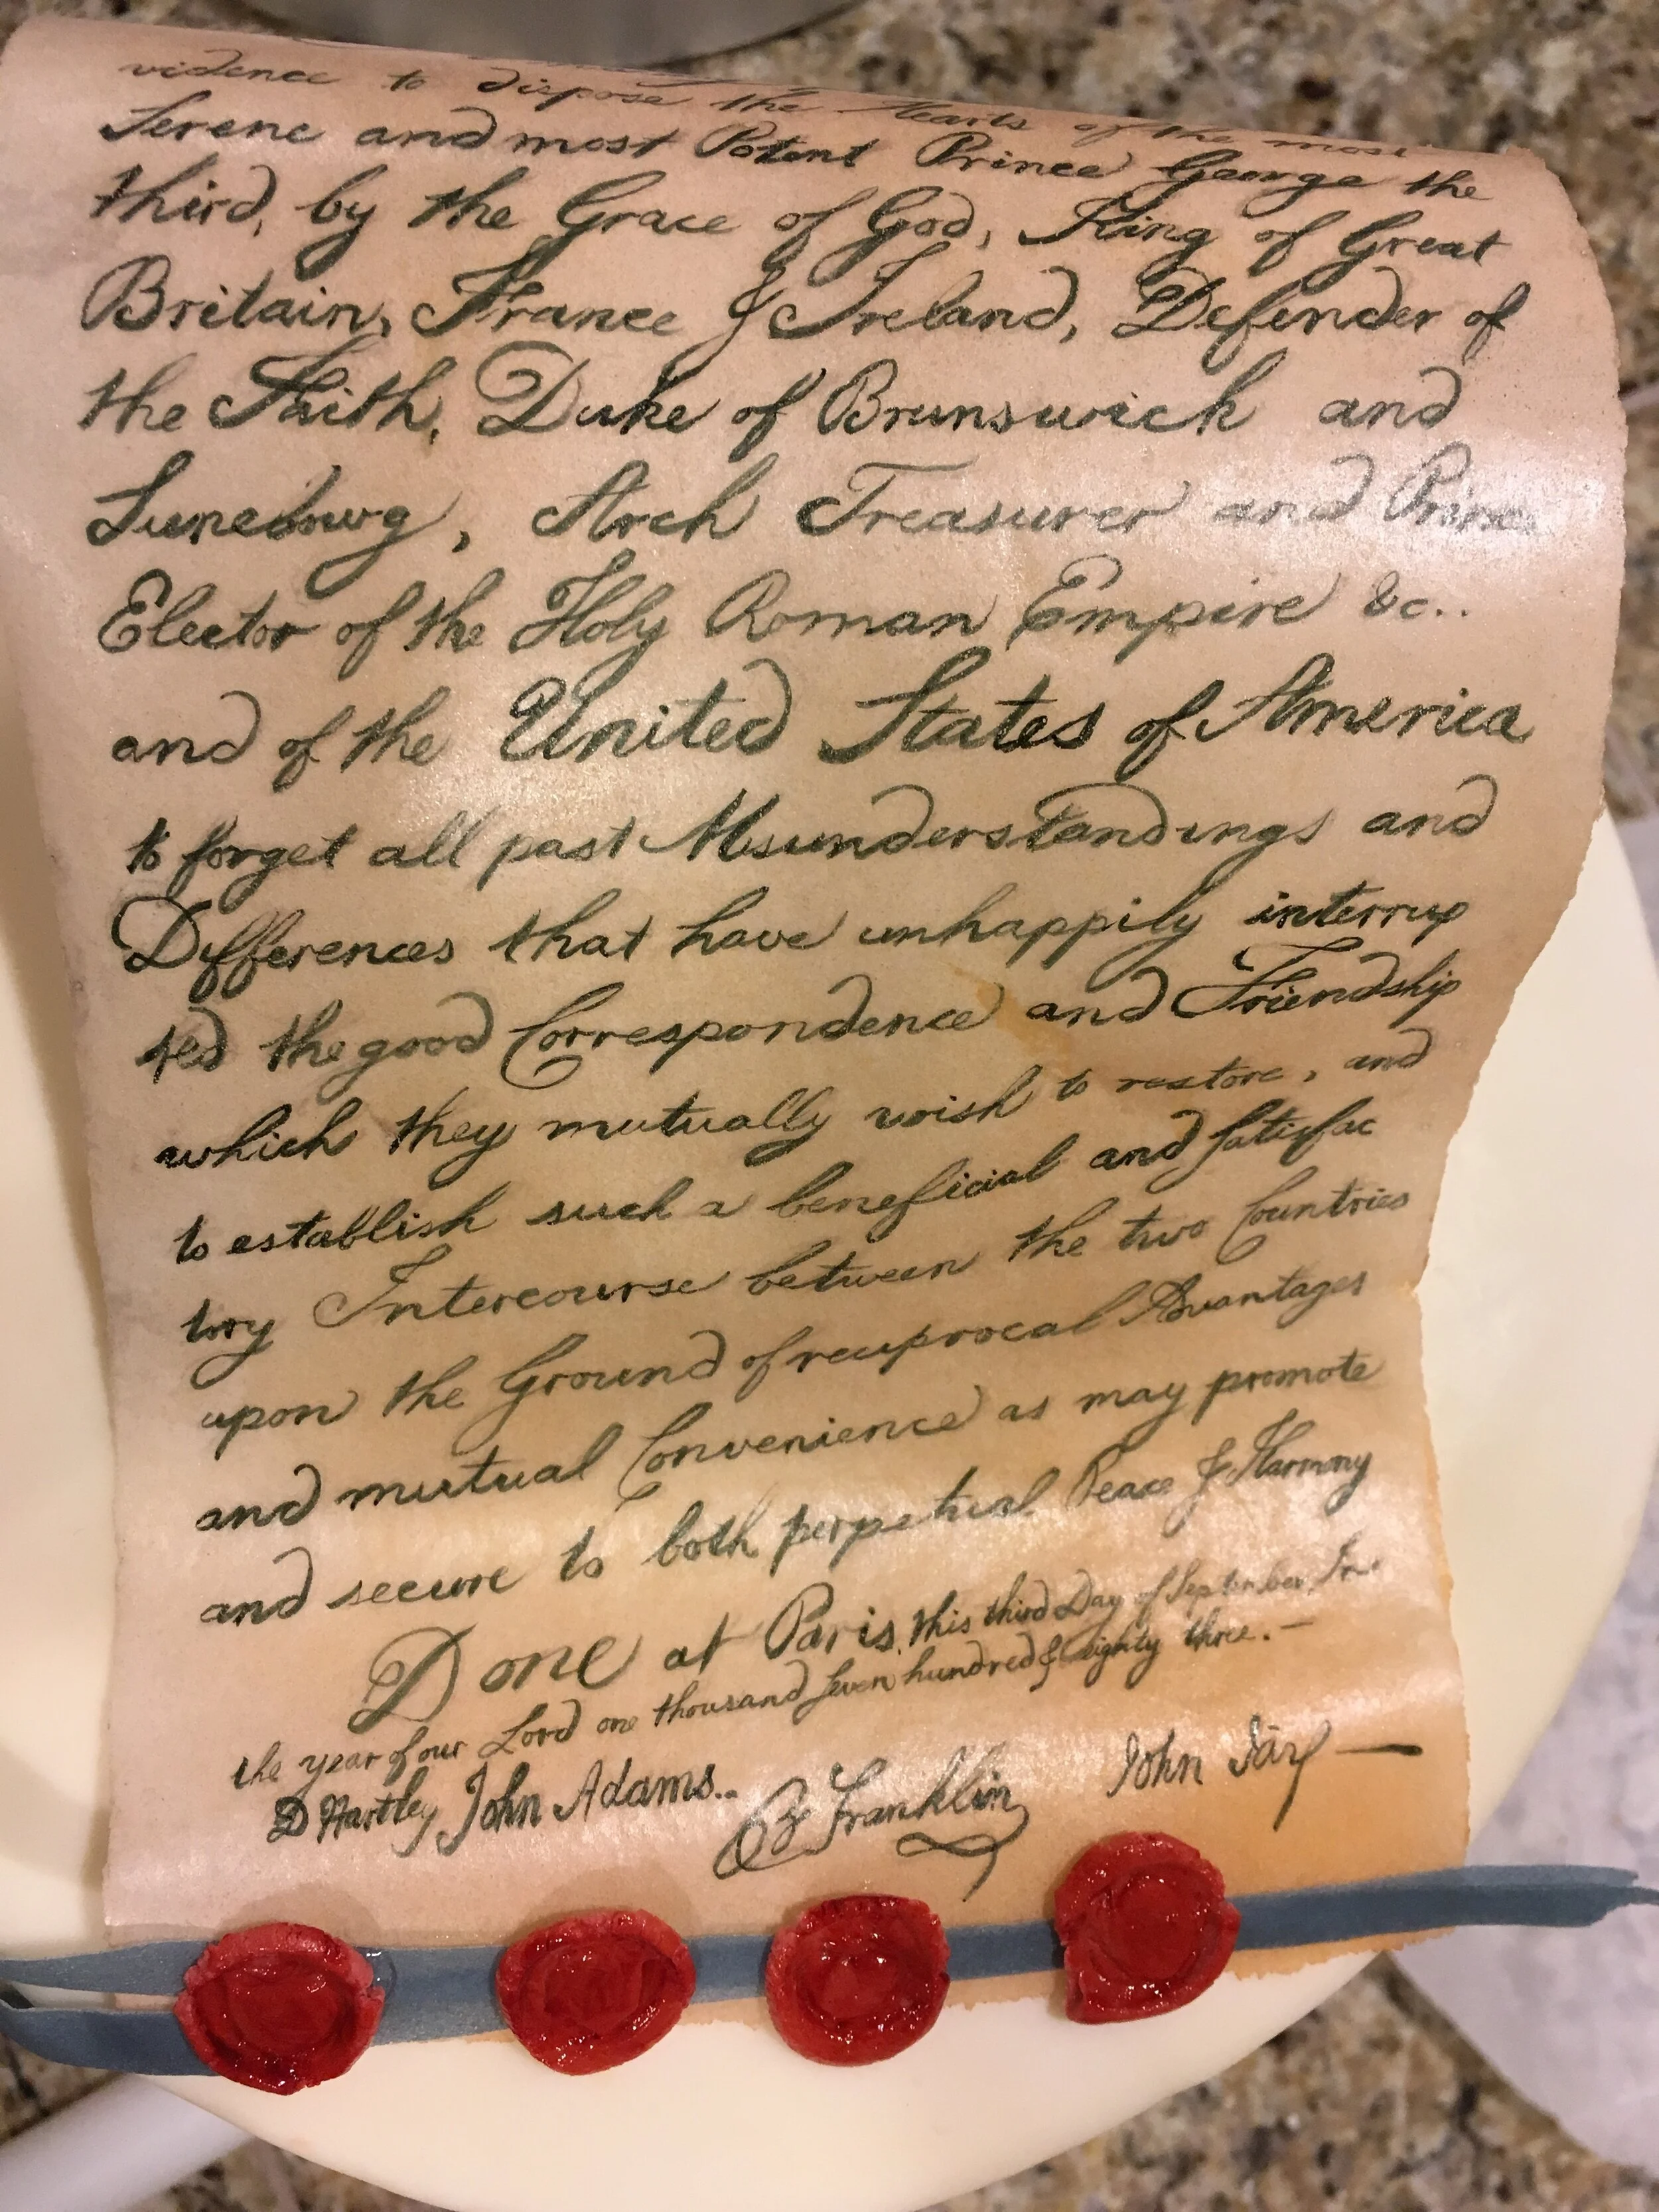 vidence to dispose the Hearts of the most
Serene and most Potent Prince George the
third, by the Grace of God, King of Great
Britain, France & Ireland, Defender of
the Faith, Duke of Brunswick and
Luneburg, Arch Treasurer and Prince
Elector of the Holy Roman Empire &c..
and of the United States of America
to forget all past Misunderstandings and
Differences that have unhappily interrup
ted the good Correspondence and Friendship
which they mutually wish to restore, and
to establish such a beneficial and satisfac
tory Intercourse between the two Countries
upon the Ground of reciprocal Advantages
and mutual Convenience as may promote
and secure to both perpetual Peace & Harmony
Done at Paris, this third Day of September, In
the year of our Lord one thousand seven hundred & eighty three. —
D Hartley John Adams.. B Franklin John Jay —